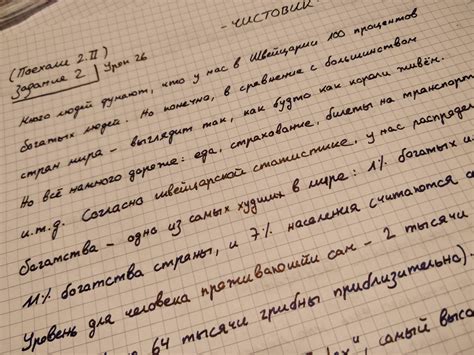 - ЧИСТОВИК -
(Поехали 2.II)
Задание 2 Урок 26
людей думают, что у нас в Швейцарии 100 процентов
богатых людей. Но конечно, в сравнение с большинством
стран мира - выглядит так, как будто как короли живём.
Но всё намного дороже: еда, страхование, билеты на транспорт
и.т.д. Согласно швейцарской статистике, у нас
богатства - одно из самых худших в мире: 1% богатых
11% богатства страны, и 7% населения считаются
Уровень для человека проживающий сам - 2 тысячи
64 тысячи грибны приблизительно).
самый